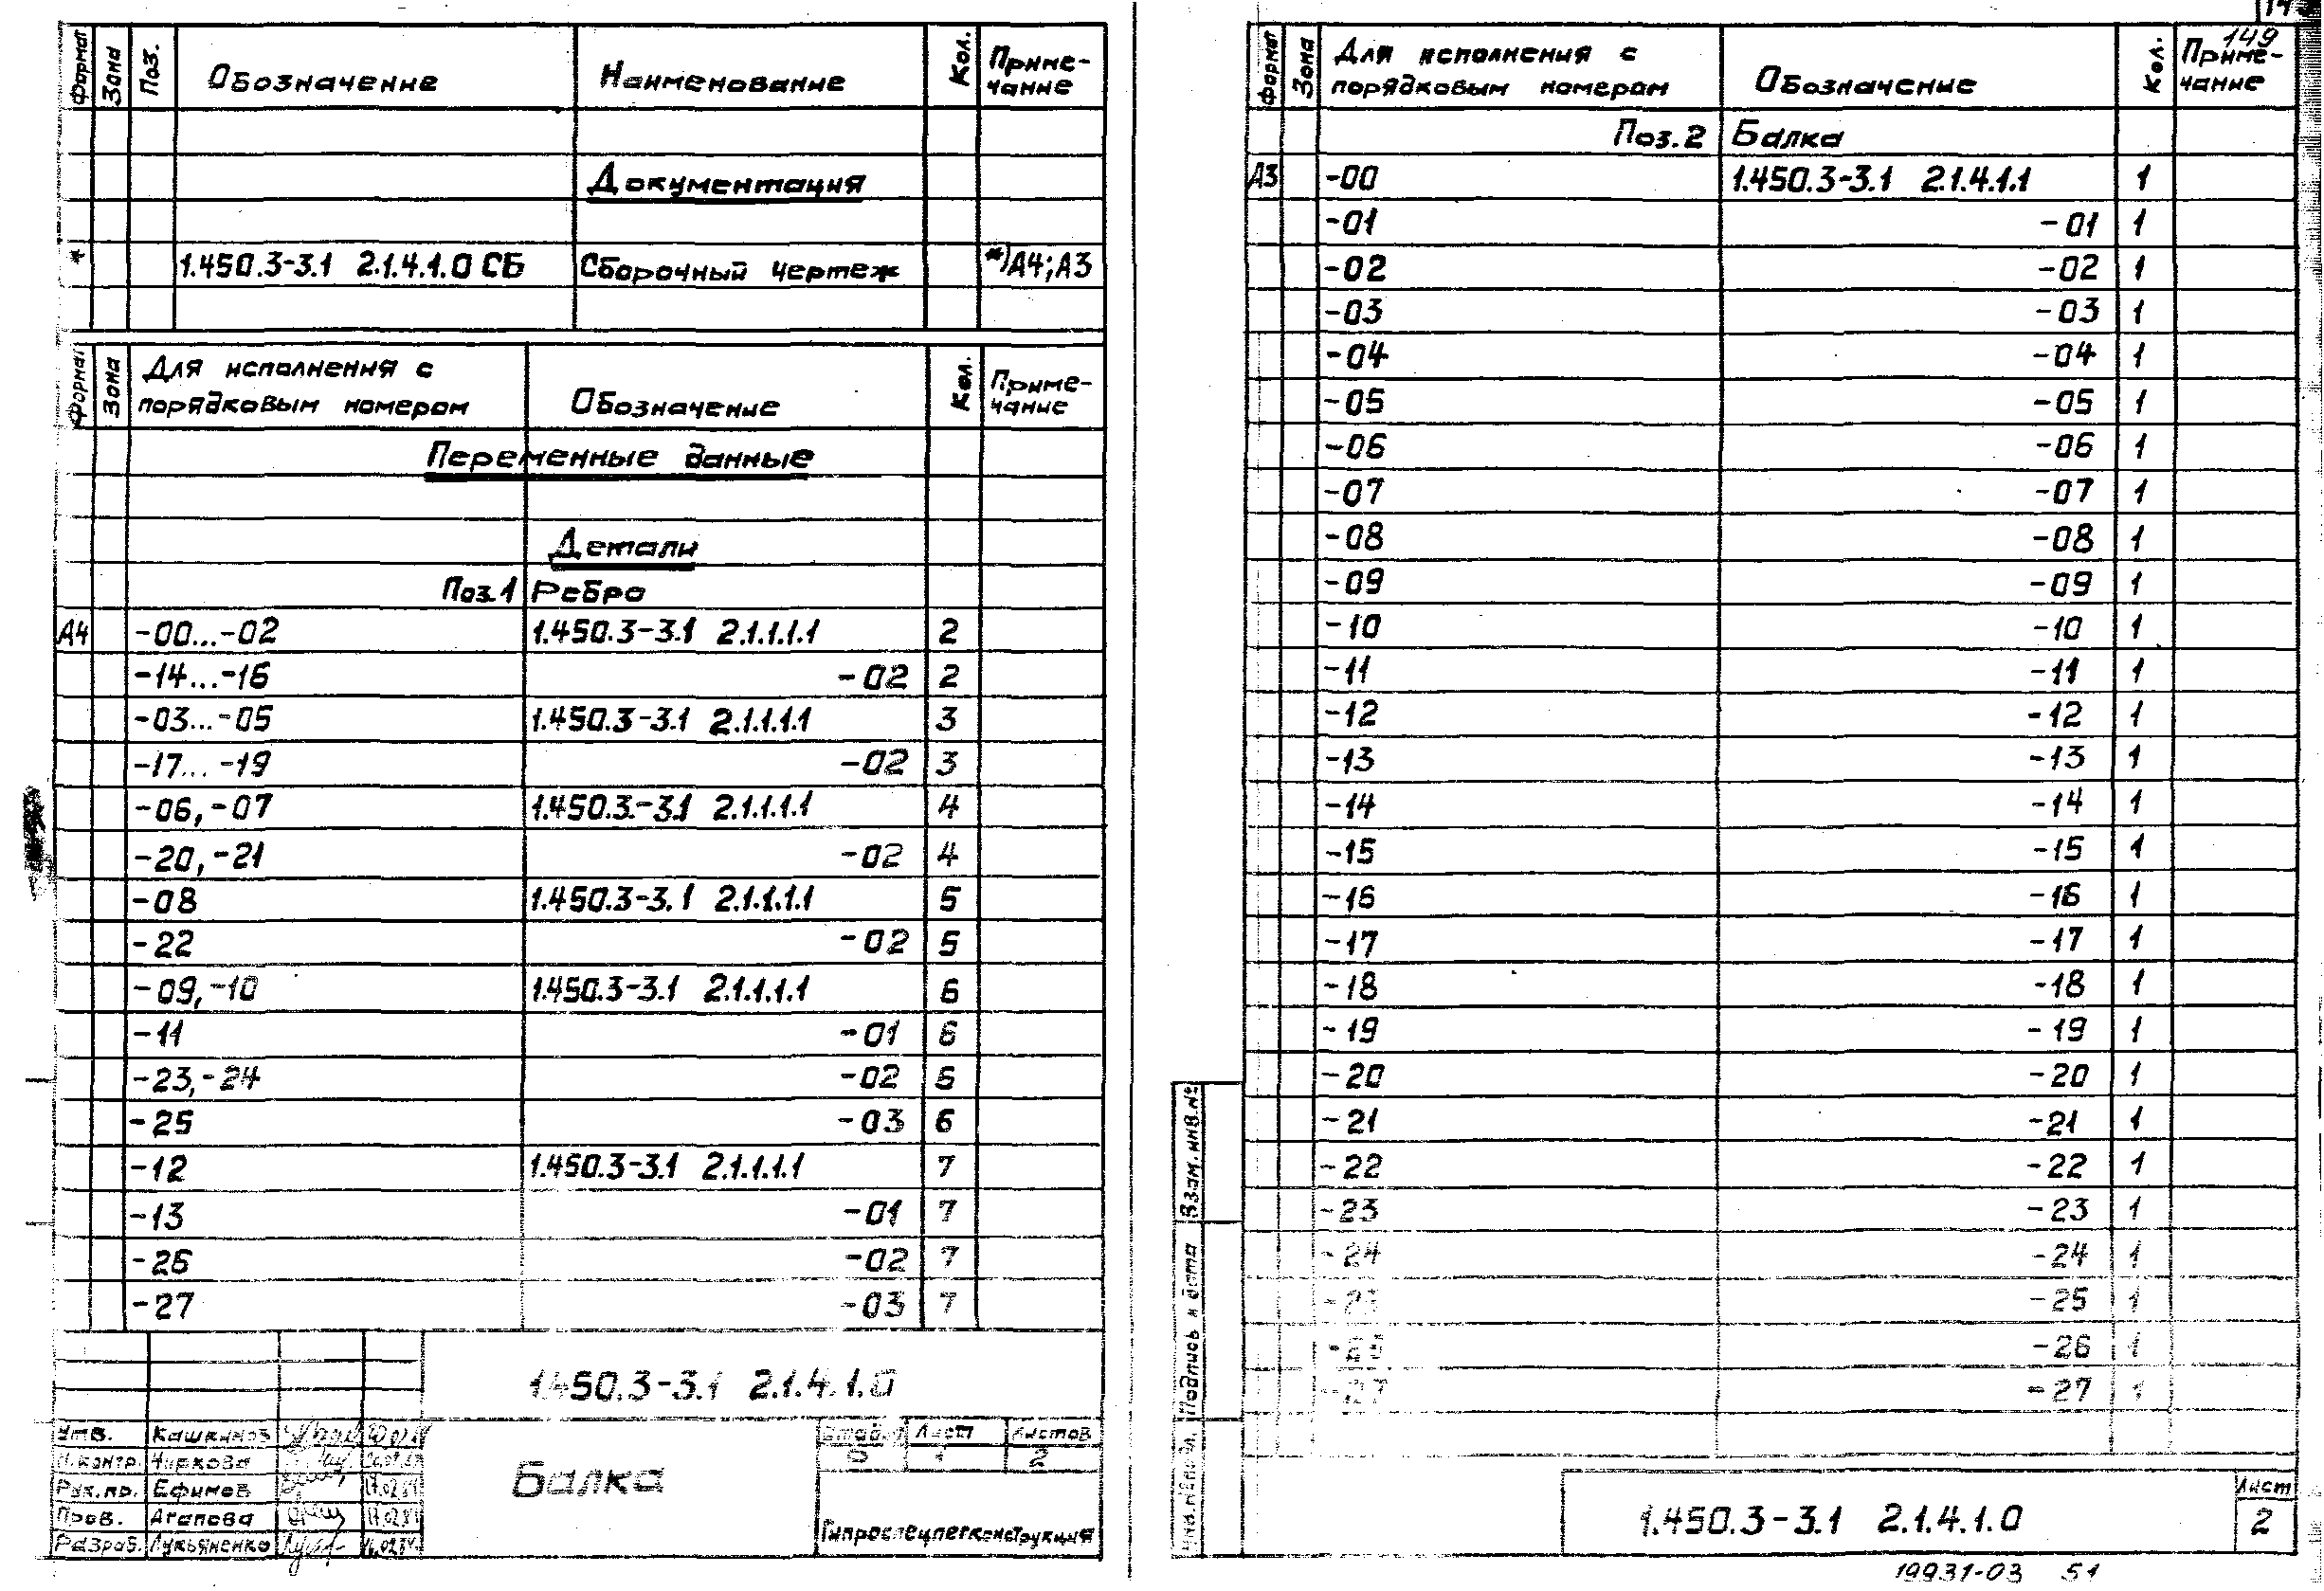 Формат Зона Поз. Обозначение Наименование Кол. Приме-
чание
Документация
* 1.450.3-3.1 2.1.4.1.0 СБ Сборочный чертеж *)А4;А3
Формат Зона Для исполнения с порядковым номером Обозначение Кол. Приме-
чание
Переменные данные
Детали
Поз.1 Ребро
А4 -00...-02 1.450.3-3.1 2.1.1.1.1 2
-14...-16 -02 2
-03...-05 1.450.3-3.1 2.1.1.1.1 3
-17...-19 -02 3
-06,-07 1.450.3-3.1 2.1.1.1.1 4
-20,-21 -02 4
-08 1.450.3-3.1 2.1.1.1.1 5
-22 -02 5
-09,-10 1.450.3-3.1 2.1.1.1.1 6
-11 -01 6
-23,-24 -02 6
-25 -03 6
-12 1.450.3-3.1 2.1.1.1.1 7
-13 -01 7
-26 -02 7
-27 -03 7
1.450.3-3.1 2.1.4.1.0
Утв. Кашкинов
Н.контр. Чиркова
Рук.пр. Ефимов 17.02.84
Пров. Агапова 17.02.84
Разраб. Лукьяненко 16.02.84
Балка
Стадия Лист Листов
1 2
Гипроспецлегконструкция
149
Формат Зона Для исполнения с порядковым номером Обозначение Кол. Приме-
чание
Поз.2 Балка
А3 -00 1.450.3-3.1 2.1.4.1.1 1
-01 -01 1
-02 -02 1
-03 -03 1
-04 -04 1
-05 -05 1
-06 -06 1
-07 -07 1
-08 -08 1
-09 -09 1
-10 -10 1
-11 -11 1
-12 -12 1
-13 -13 1
-14 -14 1
-15 -15 1
-16 -16 1
-17 -17 1
-18 -18 1
-19 -19 1
-20 -20 1
-21 -21 1
-22 -22 1
-23 -23 1
-24 -24 1
-25 -25 1
-26 -26 1
-27 -27 1
Взам.инв.№
Подпись и дата
Инв.№подл.
1.450.3-3.1 2.1.4.1.0
Лист
2
19931-03 51